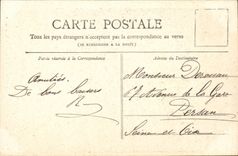 CARTE POSTALE
Tous les pays étrangers n'acceptent pas la correspondance au verso
(SE RENSEIGNER A LA POSTE)
Partie réservée à la Correspondance
Adresse du Destinataire
Amitiés
De bons baisers
Monsieur
Avenue de la Gare
Persan
Seine-et-Oise